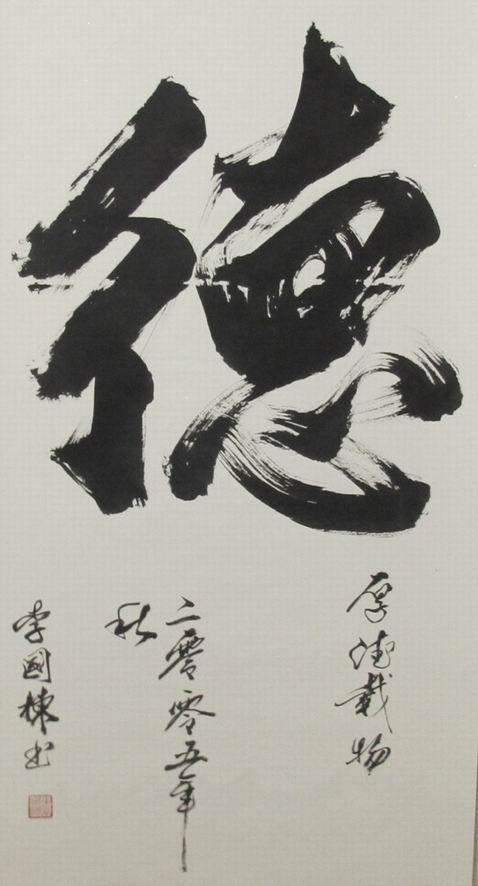 德
厚德載物
二零零五年
秋
李國棟书